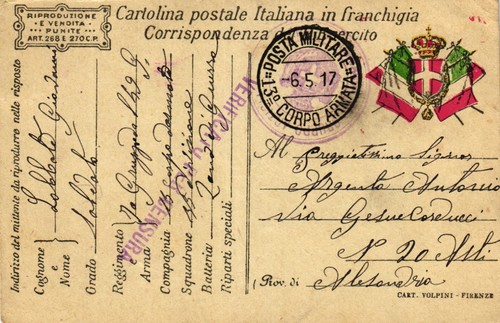 RIPRODUZIONE
E VENDITA
PUNITE
ART. 268 E 270 C.P.
Cartolina postale Italiana in franchigia
Corrispondenza del R. Esercito
POSTA MILITARE
-6.5.17
13° CORPO ARMATA
VERIFICATO CENSURA
Indirizzo del mittente da riprodurre nelle risposte
Cognome e Nome
Grado Soldato
Reggimento
Arma
Compagnia
Squadrone
Batteria Zona di Guerra
Riparti speciali
Al Signor
Argenta Antonio
Via Gesue Carducci
N 20 Asti
Prov. di Alesandria
CART. VOLPINI - FIRENZE